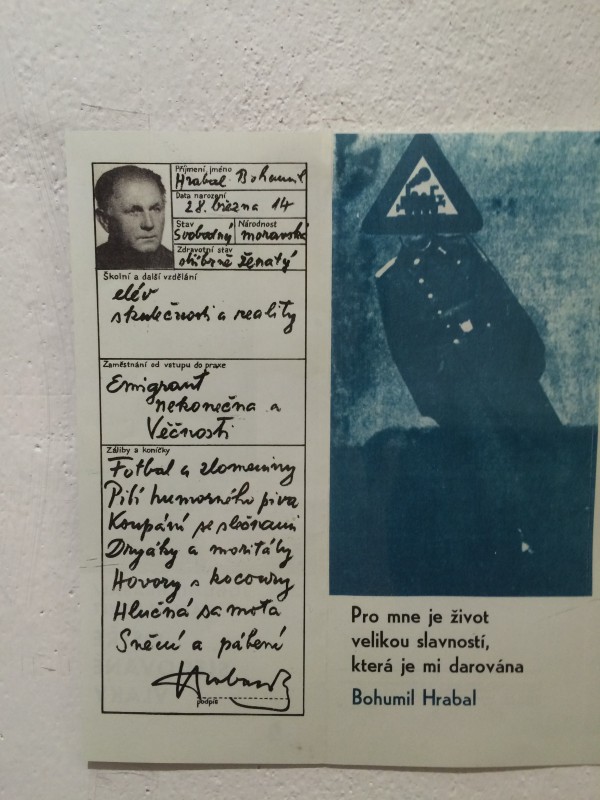 Příjmení, jméno
Hrabal Bohumil
Data narození
28. března 14
Stav
Národnost
Svobodný
moravská
Zdravotní stav
stříbrně ženatý
Školní a další vzdělání
elév
skutečnosti a reality
Zaměstnání od vstupu do praxe
Emigrant
nekonečna a
Věčnosti
Záliby a koníčky
Fotbal a zlomeniny
Pití humorného piva
Koupání se slečnami
Dryáky a moritáty
Hovory s kocoury
Hlučná samota
Snění a pábení
Hrabal B
podpis
Pro mne je život
velikou slavností,
která je mi darována
Bohumil Hrabal